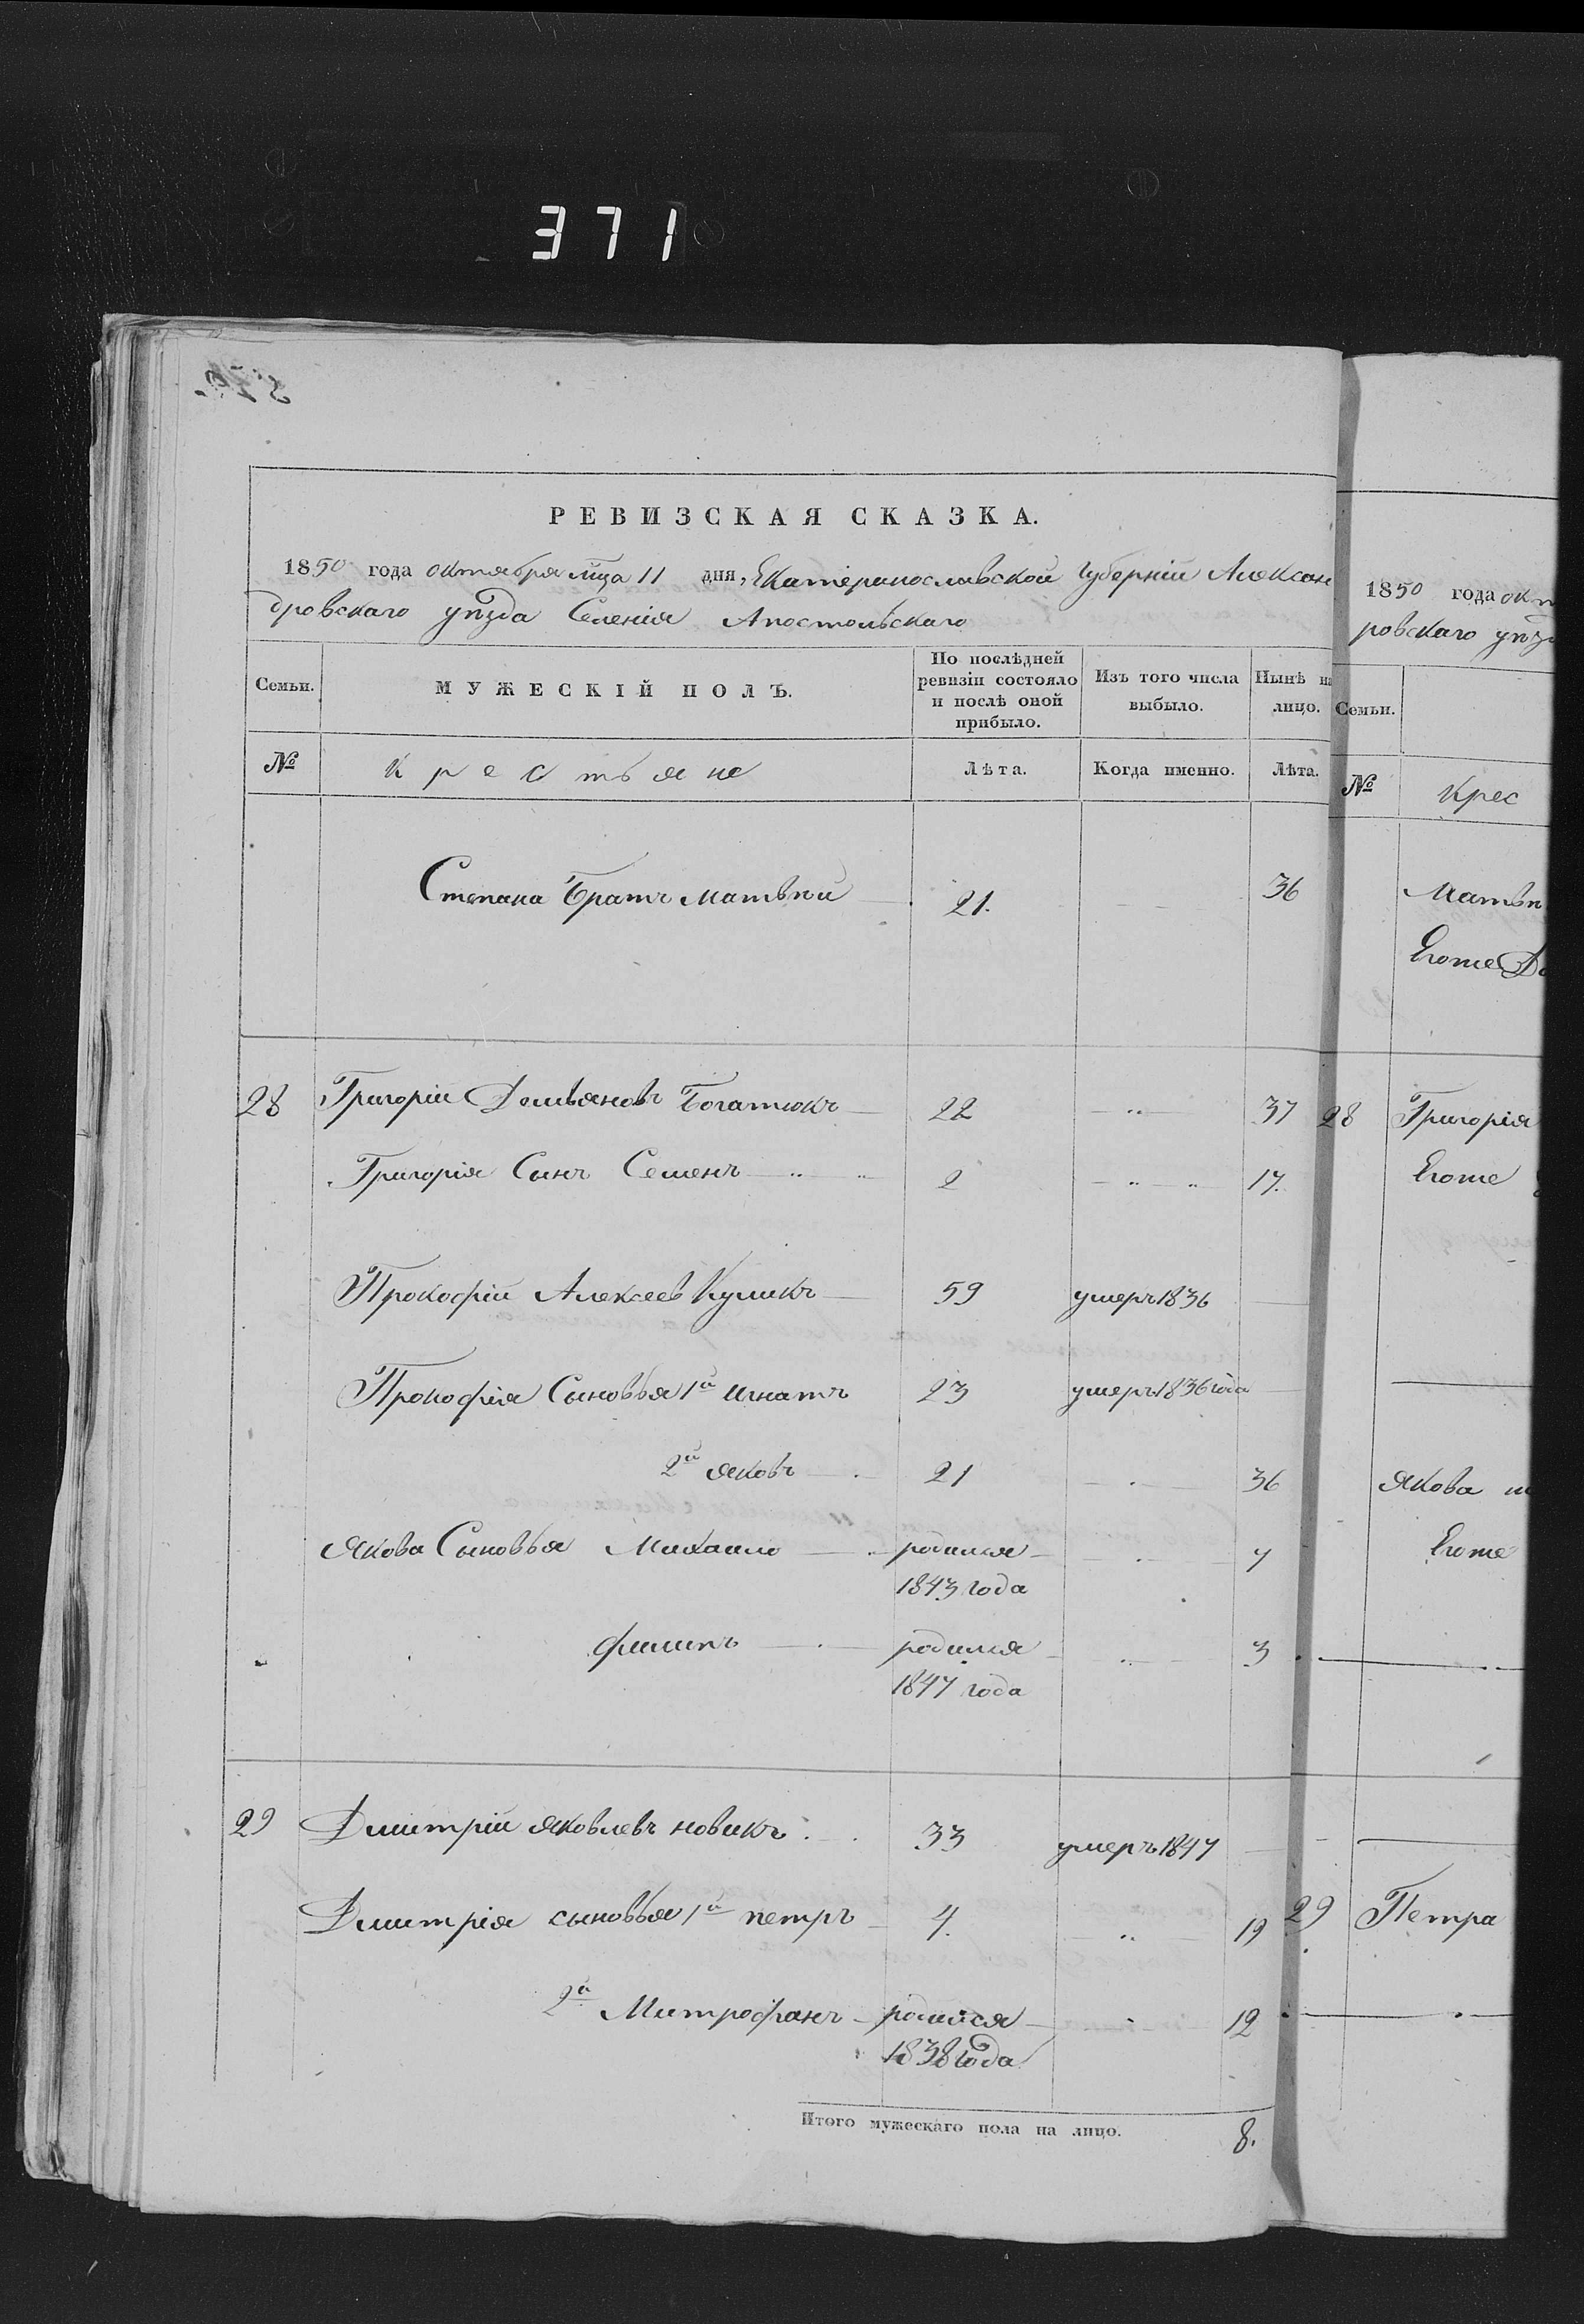 371
РЕВИЗСКАЯ СКАЗКА.
1850 года октября мца 11 дня, Екатеринославской Губерніи Алексан
дровскаго уѣзда Селенія Апостольскаго
Семьи. МУЖЕСКІЙ ПОЛЪ. По послѣдней ревизіи состояло и послѣ оной прибыло. Изъ того числа выбыло. Нынѣ на лицо.
№ Крестьяне Лѣта. Когда именно. Лѣта.
Степана Братъ Матвѣй 21. 36
28 Григорій Демьяновъ Богатюкъ 22 37
Григорія Сынъ Семенъ 2 17.
Прокофій Алексеев Куликъ 59 умеръ 1836
Прокофія Сыновья 1й Игнатъ 23 умеръ 1836 года
2й Яковъ 21 36
Якова Сыновья Михаило родился 7
1843 года
Филипъ родился 3
1847 года
29 Дмитрій Яковлевъ Новикъ 33 умеръ 1847
Дмитрія сыновья 1й Петръ 4. 19
2й Митрофанъ родился 12
1838 года
Итого мужескаго пола на лицо. 8.
1850 года окт
ровскаго уѣзд
Семьи.
№ Крес
Матвѣ
Егоже До
28 Григорія
Егоже
Якова
Егоже
29 Петра